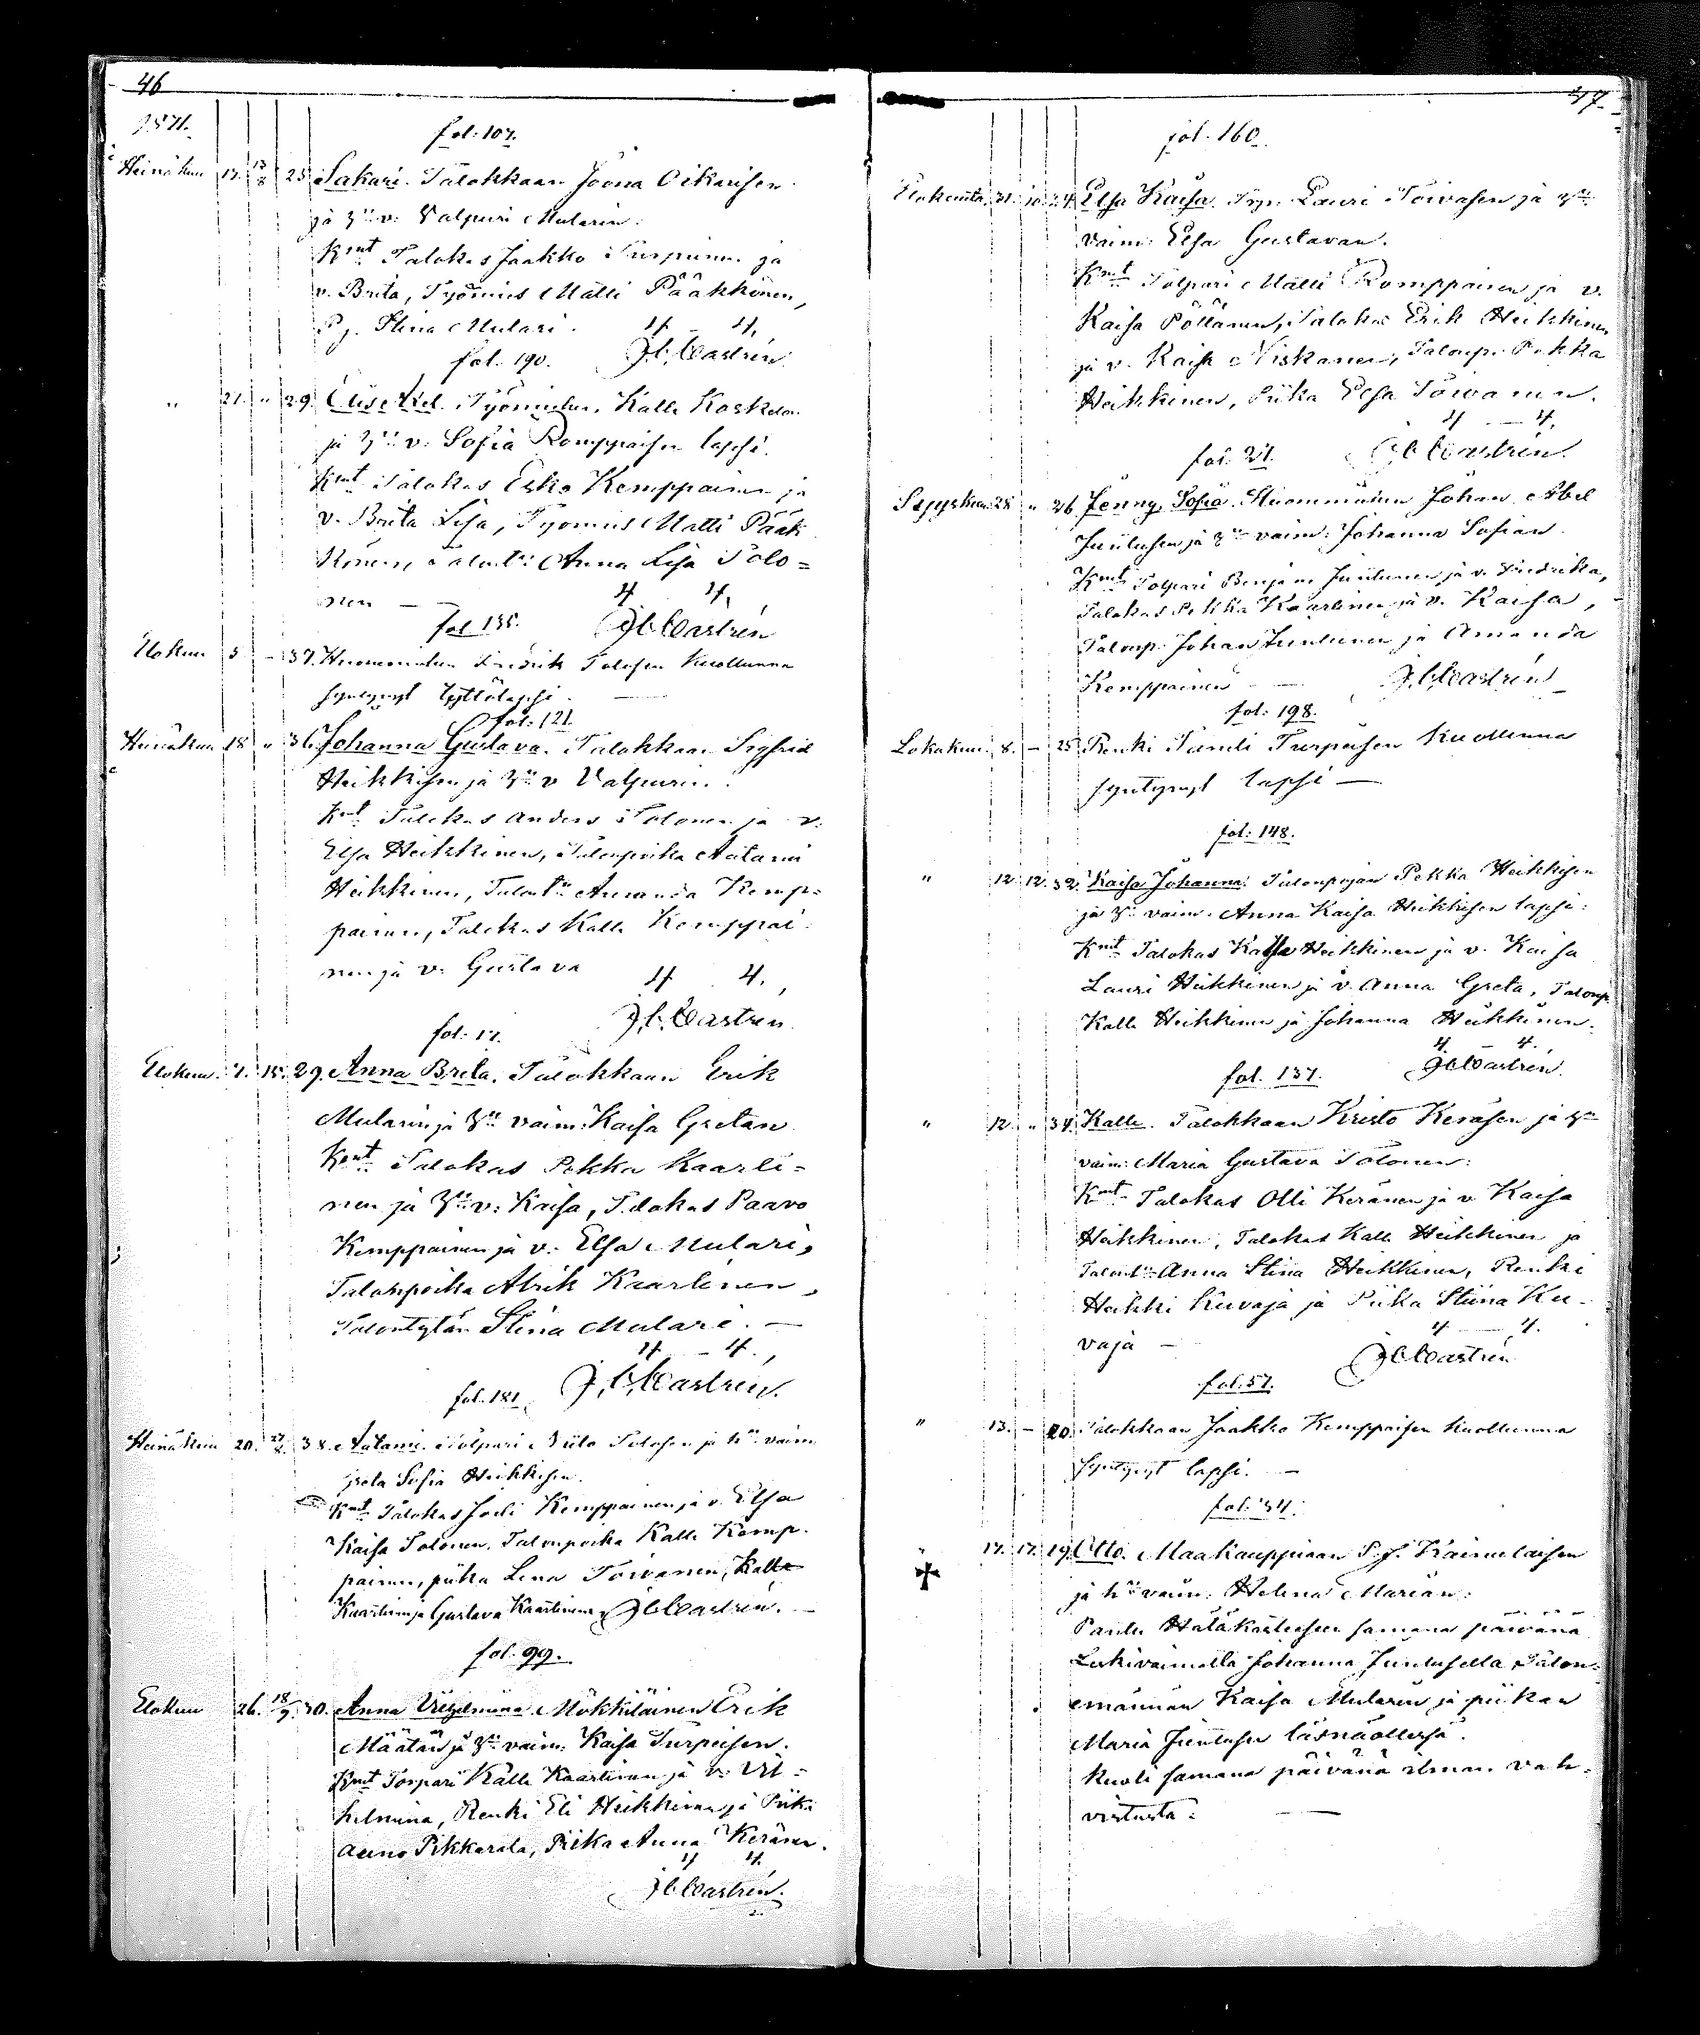 46
1871.
fol: 107.
Heinäkuu 17. 13/8 25 Sakari. Talokkaan Joona Oikarisen
ja v: Valpuri Mularin.
Kmt Talokas Jaakko Turpeinen ja
v. Brita, Työmies Matti Pääkkönen,
Pj. Stina Mulari. 4 – 4,
fol. 190. J.C. Castrén
" 21. " 29. Axel. Työmiehen Kalle Koskelon
ja v: Sofia Romppaisen lapsi.
Kmt Talokas Esko Kemppainen ja
v. Brita Lisa, Työmies Matti Pääk
könen, Anna Lisa Tolo=
nen — 4 4,
fol 135. J.C. Castrén
Elokuu 5 – 37. Huonemiehen Fredrik Tolosen kuolluna
syntynyt tyttölapsi. —
fol: 121.
Heinäkuu 18 " 36. Johanna Gustava. Talokkaan Sigfrid
Heikkisen ja v Valpurin.
Kmt Talokas Anders Tolonen ja v:
Elsa Heikkinen, Talonpoika Aatami
Heikkinen, Amanda Kemp=
painen, Talokas Kalle Kemppai
nen ja v: Gustava 4 4,
J.C. Castrén
fol: 17.
Elokuu. 7. 15. 29. Anna Brita. Talokkaan Erik
Mularin ja vaim: Kaisa Gretan
Kmt Talokas Pekka Kaarli=
nen ja v: Kaisa, Talokas Paavo
Kemppainen ja v. Elsa Mulari,
Talonpoika Abrik Kaarlinen,
Talontytär Stina Mulari. —
4 – 4,
fol. 181. J.C. Castrén.
Heinäkuu 20. 27/8. 38. Aatami. Tolpari Niilo Tolosen ja vaim
Greta Sofia Heikkisen.
Kmt Talokas Kemppainen ja v. Elsa
Kaisa Tolonen. Talonpoika Kalle Kemp-
painen, piika Lena Toivanen, Kalle
Kaarlinen ja Gustava Kaarlinen J.C. Castrén. —
fol: 99.
Elokuu 26. 18/9. 30. Anna Vilhelmiina Mökkiläinen Erik
Määtän ja vaim: Kaisa Turpeisen.
Kmt Torpari Kalle Kaarlinen ja v: Vil=
helmina, Renki Eli Heikkinen ja Piika
Pikkarala, Piika Anna Keränen.
4 4.
J.C. Castrén.
47
fol. 160.
Elokuuta 31. 10. 24. Elsa Kaisa. Lauri Toivasen ja
vaim: Elsa Gustavan.
Kmt Tolpari Matti Romppainen ja v.
Kaisa Pöllänen, Talokas Erik Heikkinen
ja v. Kaisa Niskanen, Talonp. Pekka
Heikkinen, Piika Elsa Toivanen.
4 – 4,
fol. 21. J.C. Castrén.
Syyskuu 28 " 26 Jenny Sofia. Johan Abel
Juntusen ja vaim: Johanna Sofian.
Kmt Tolpari Benjam Juntunen ja v. Fredrika,
Talokas Pekka Kaarlinen ja v. Kaisa,
Talonp. Johan Juntunen ja Amanda
Kemppainen — J.C. Castrén
fol: 198.
Lokakuu. 8. – 25 Renki Turpeisen kuolluna
syntynyt lapsi —
fol: 148.
" 12 12. 32. Kaisa Johanna. Talonpojan Pekka Heikkisen
ja vaim. Anna Kaisa Heikkisen lapsi:
Kmt Talokas Kalle Heikkinen ja v. Kaisa
Lauri Heikkinen ja v. Anna Greta, Talonp.
Kalle Heikkinen ja Johanna Heikkinen.
4 – 4.
fol. 137. J.C. Castrén.
" 12 " 34 Kalle. Talokkaan Kristo Keräsen ja
vaim: Maria Gustava Tolonen:
Kmt Talokas Olli Keränen ja v. Kaisa
Heikkinen, Talokas Kalle Heikkinen ja
Anna Stina Heikkinen, Renki
Heikki Kuvaja ja Piika Stiina Ku-
vaja — 4 — 4.
J.C. Castrén
fol: 57.
" 13. – 20. Talokkaan Jaakko Kemppaisen kuolluna
syntynyt lapsi. —
fol: 34.
" 17. 17. 19. Otto. Maakauppiaan Kainulaisen
ja vaim: Helena Marian:
Hätäkasteesen samana päivänä
Leskivaimolta Johanna Juntuselta Talon=
emännän Kaisa Mularin ja piikan
Maria Juntusen läsnäollessa.
Kuoli samana päivänä ilman vah-
vistusta. —